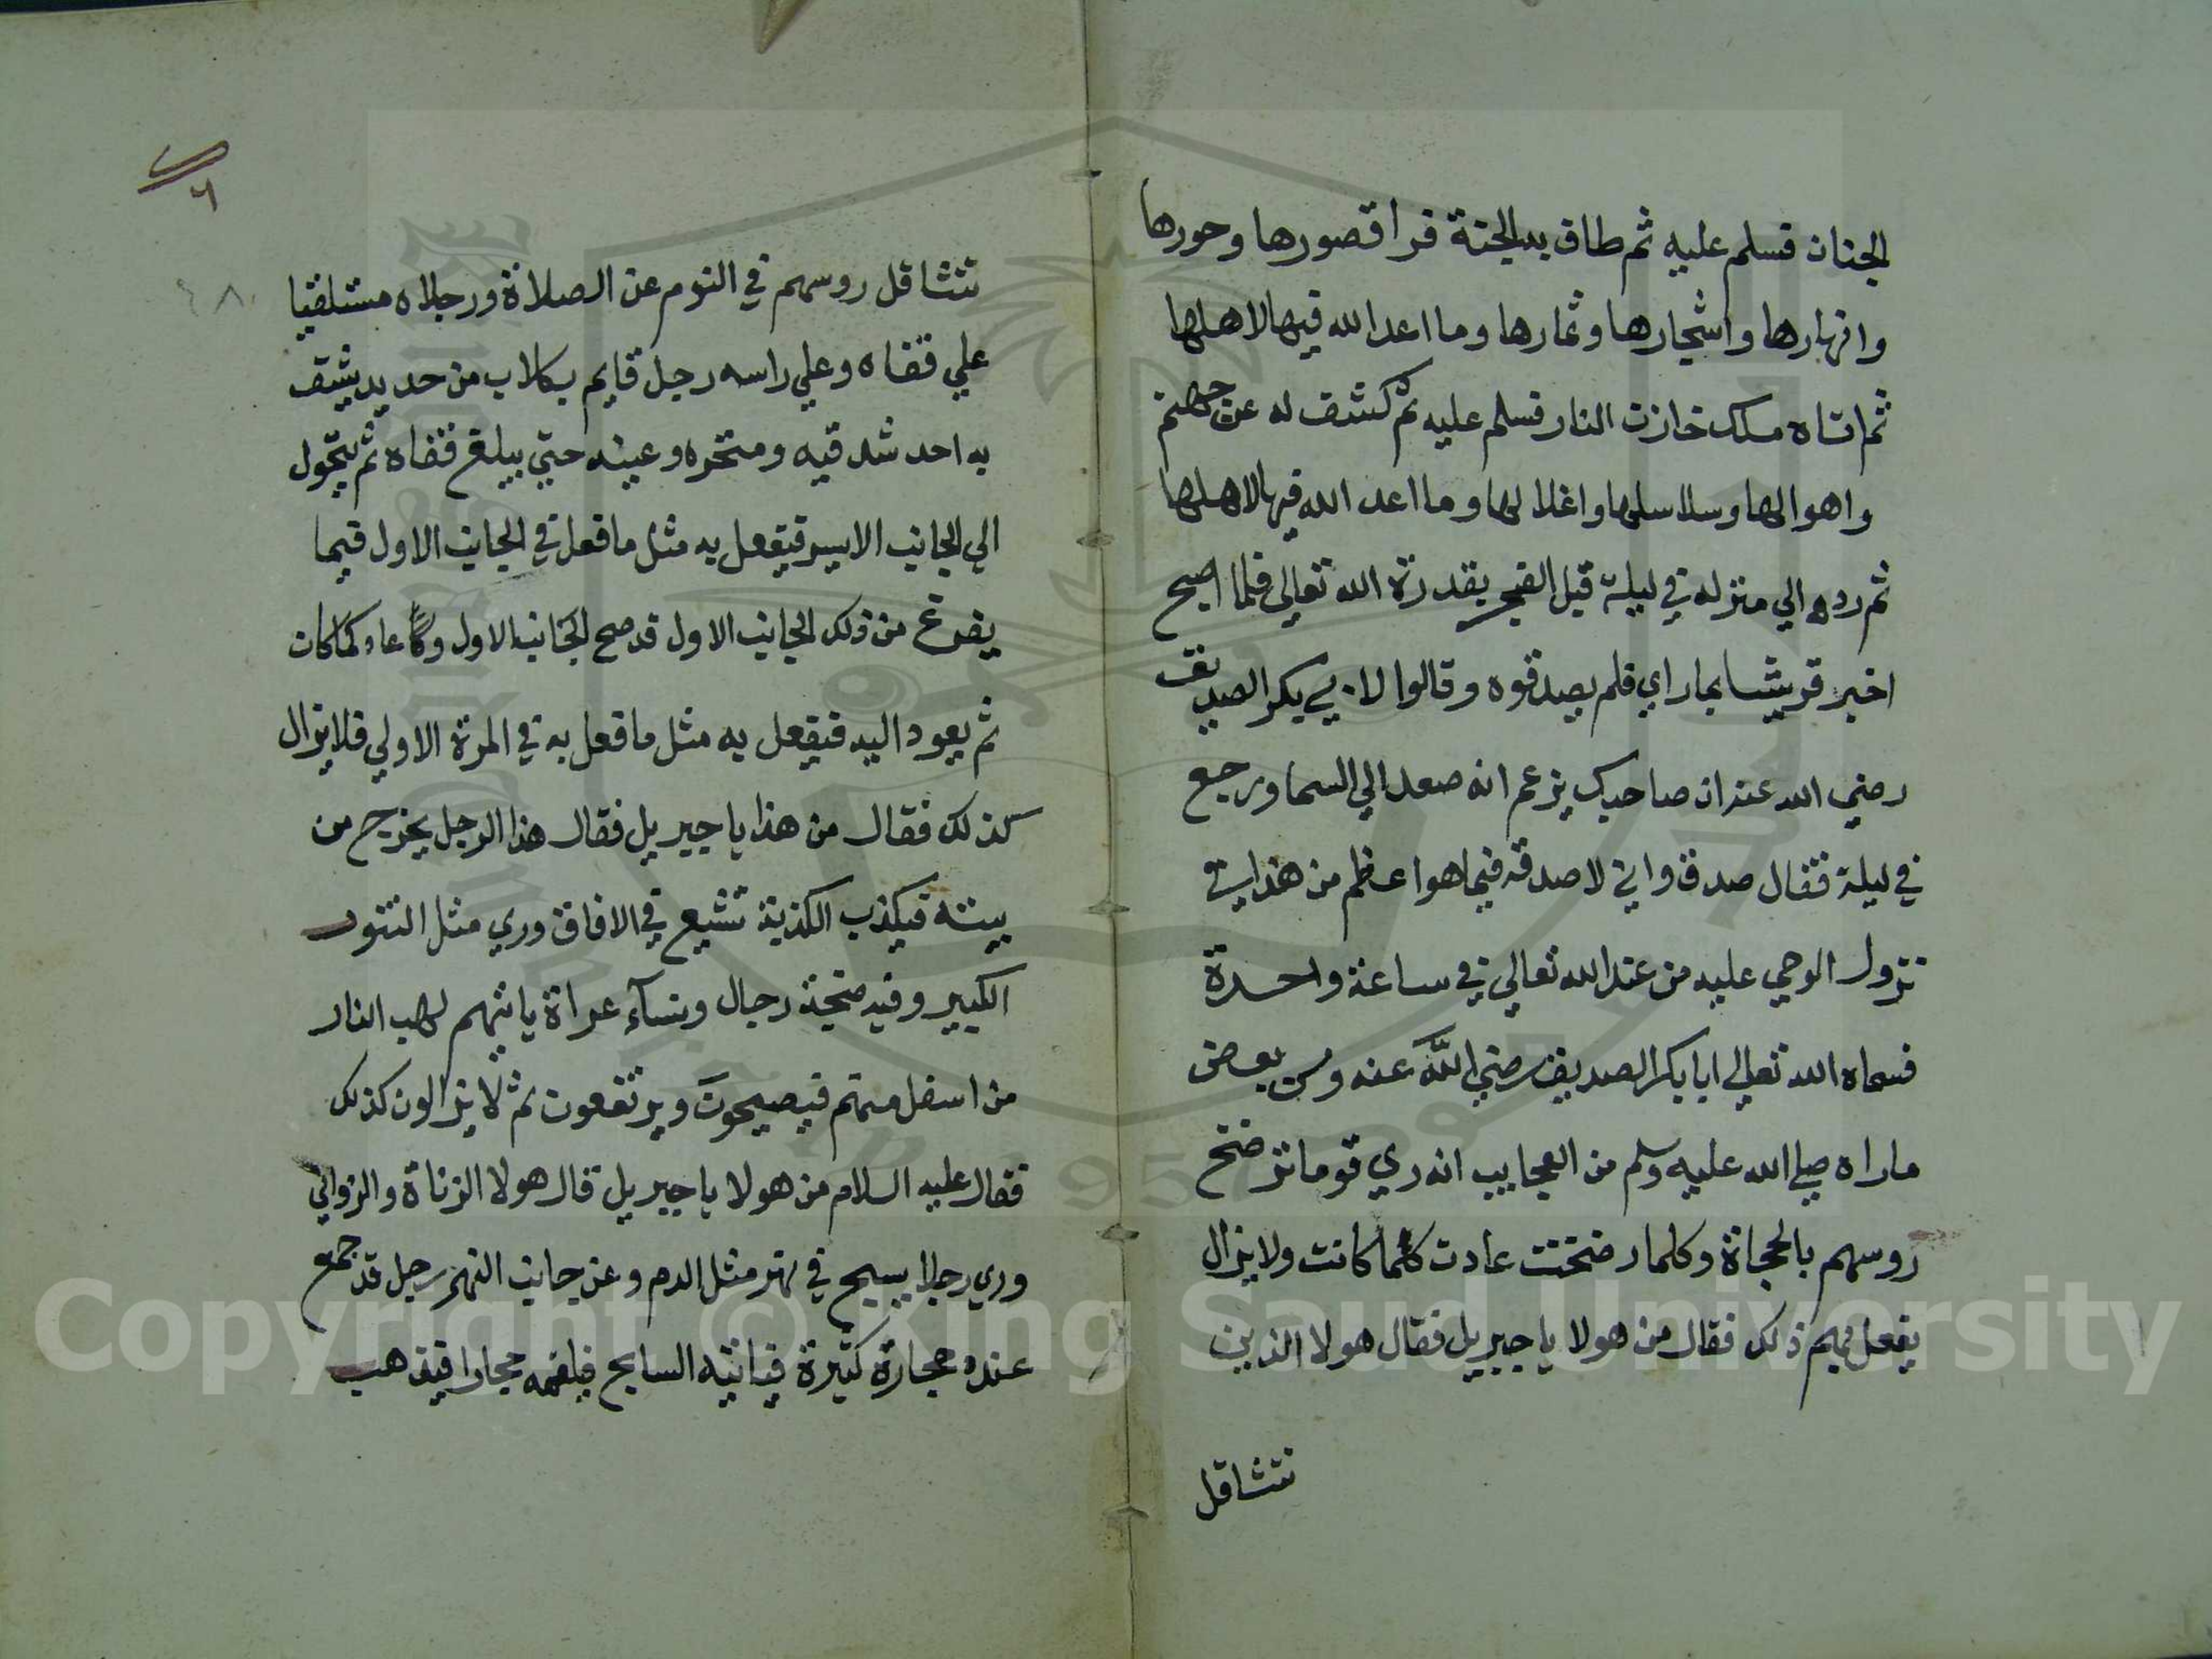 الجنان فسلم عليه ثم طاف به الجنة فرا قصورها وحورها
وانهارها واشجارها وثمارها وما اعد الله فيها لاهلها
ثم اتاه مالك خازن النار فسلم عليه ثم كشف له عن جهنم
واهوالها وسلاسلها واغلالها وما اعد الله فيها لاهلها
ثم رده الي منزله في ليلة قبل الفجر بقدرة الله تعالي فلما اصبح
اخبر قريشا بما راي فلم يصدقوه وقالوا لابي بكر الصديق
رضي الله عنه ان صاحبك يزعم انه صعد الي السما ورجع
في ليلة فقال صدق واني لاصدقه فيما هو اعظم من هذا في
نزول الوحي عليه من عند الله تعالي في ساعة واحدة
فسماه الله تعالي ابا بكر الصديق رضي الله عنه ومن بعض
ماراه صلي الله عليه وسلم من العجايب انه ري قوما ترضخ
روسهم بالحجاة وكلما رضخت عادت كما كانت ولا يزال
يفعل بهم ذلك فقال من هولا يا جبريل فقال هولا الذين
تتثاقل
٦
تتثاقل روسهم في النوم عن الصلاة ورجلاه مستلقيا
علي قفاه وعلي راسه رجل قايم بكلاب من حديد يشق
به احد شدقيه ومنخره وعينه حتي يبلغ قفاه ثم يتحول
الي الجانب الايسر فيفعل به مثل ما فعل في الجانب الاول فيما
يفرغ من ذلك الجانب الاول قد صح الجانب الاول وكا عاد كما كان
ثم يعود اليه فيفعل به مثل ما فعل به في المرة الاولي فلا يزال
كذلك فقال من هذا يا جبريل فقال هذا الرجل يخرج من
بيته فيكذب الكذبة تشيع في الافاق وري مثل التنور
الكبير وفيه ضجة رجال ونسآء عراة ياتيهم لهب النار
من اسفل منهم فيصيحون ويرتفعون ثم لا يزالون كذلك
فقال عليه السلام من هولا يا جبريل قال هولا الزناة والزواني
وري رجلا يسبح في نهر مثل الدم وعن جانب النهر رجل قد جمع
عنده حجارة كثيرة فياتيه السابح فيلقمه حجارا فيذهب
Copyright © King Saud University